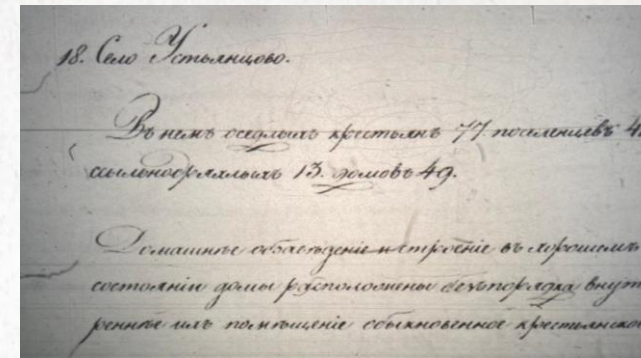 18. Село Устьянцово.
Въ немъ оседлыхъ крестьянъ 77. поселенцевъ
13. домовъ 49.
Домашнѣе и строенiе въ хорошемъ
состоянiи домы расположены безъ порядка внут
реннѣе ихъ помѣщенiе обыкновенное крестьянское